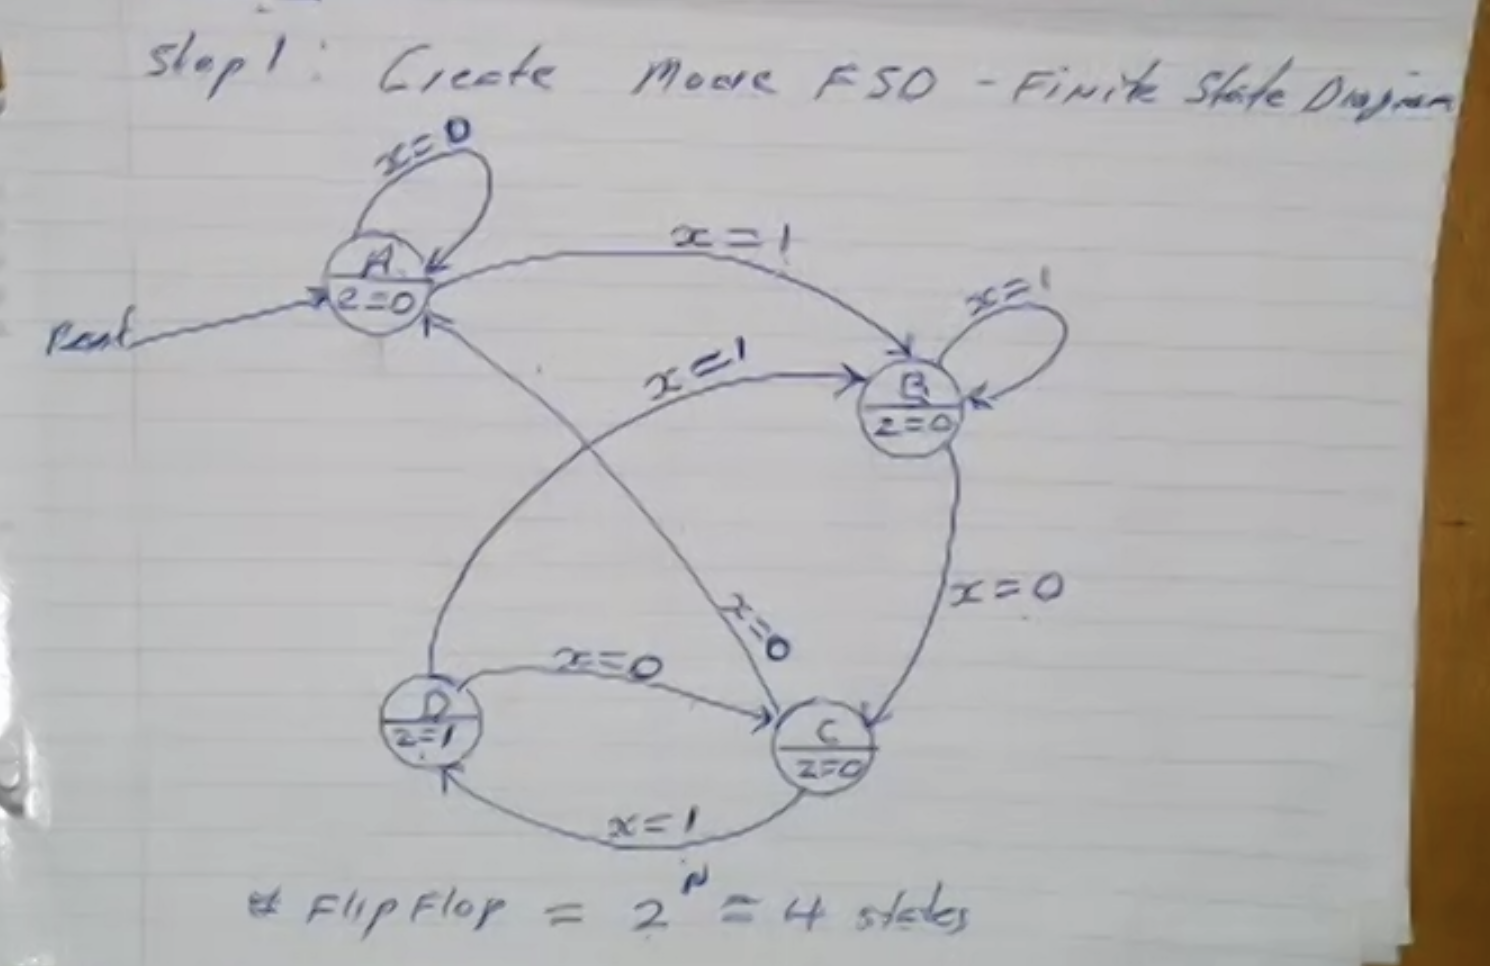 Step 1: Create Moore FSD - Finite State Diagram
x=0
x=1
A
z=0
x=1
Reset
x=1
B
z=0
x=0
x=0
x=0
D
z=1
C
z=0
x=1
# FlipFlop = 2^N = 4 states